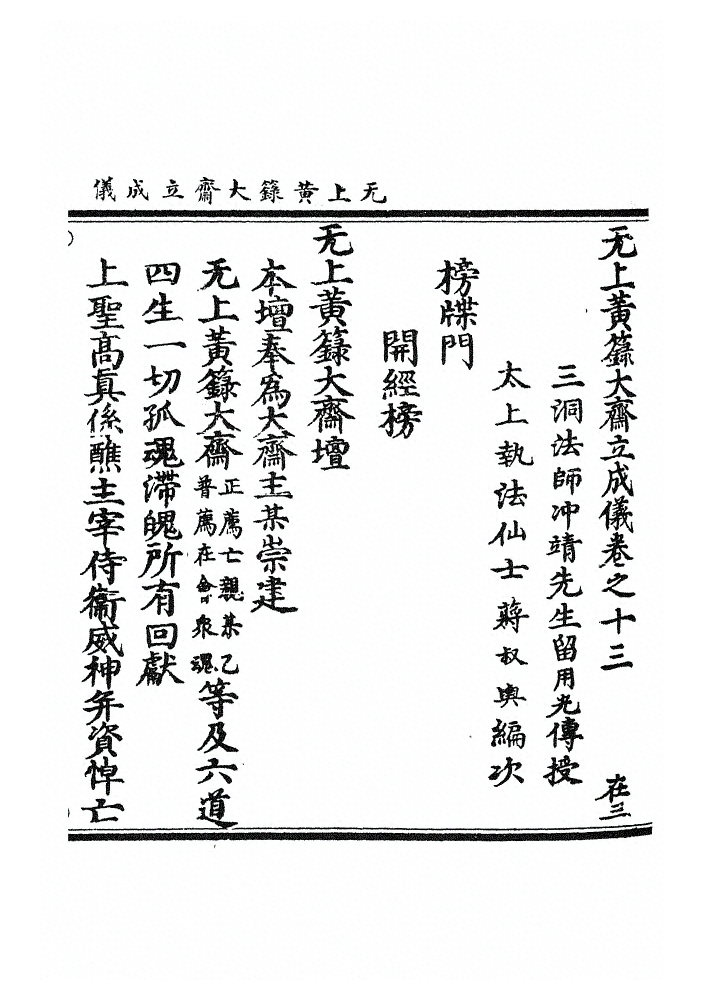 无上黄籙大齋立成儀
无上黃籙大齋立成儀卷之十三 在三
三洞法師冲靖先生留用光傳授
太上執法仙士蔣叔輿編次
榜牒門
開經榜
无上黃籙大齋壇
本壇奉爲大齋主某崇建
无上黃籙大齋正薦亡親某乙普薦在會衆魂等及六道
四生一切孤魂滯魄所有回獻
上聖高眞係醮主宰侍衞威神并資悼亡